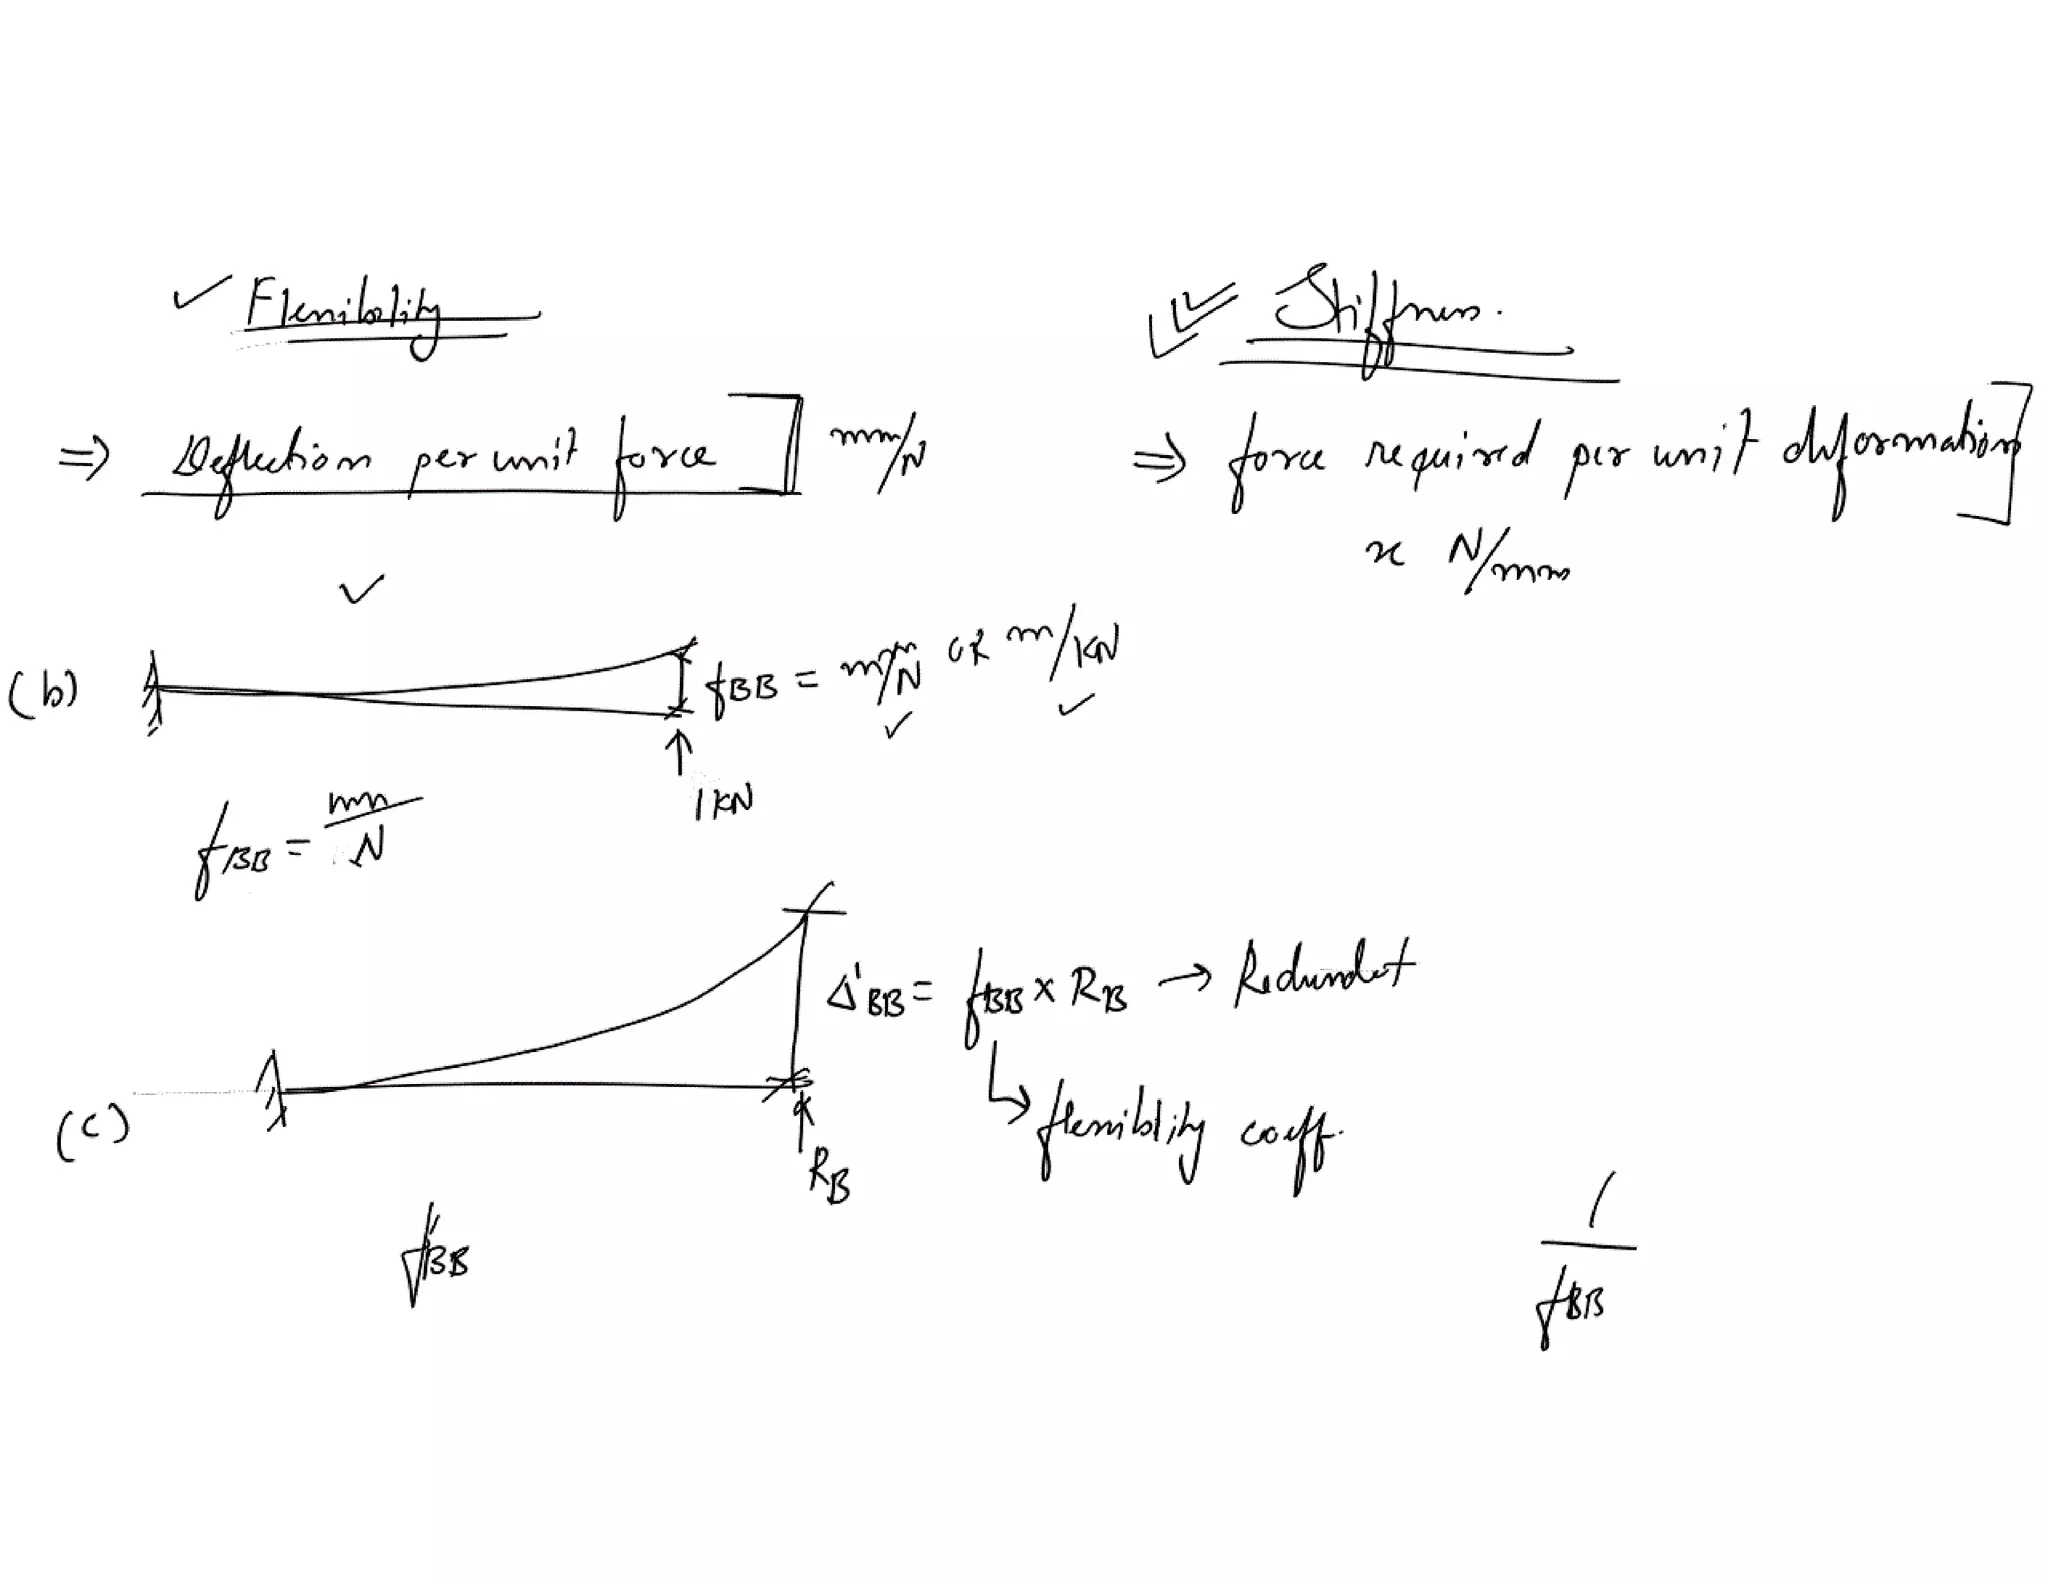 ✓ Flexibility
✓✓ Stiffness.
⇒ Deflection per unit force ] mm/N
⇒ force required per unit deformation ]
x N/mm
✓
(b)
fBB = mm/N OR m/KN
✓ ✓
↑
1 KN
fBB = mm/N
Δ'BB = fBB x RB → Redundat
↳ flexiblity coeff.
(c)
RB
fBB
1/fBB